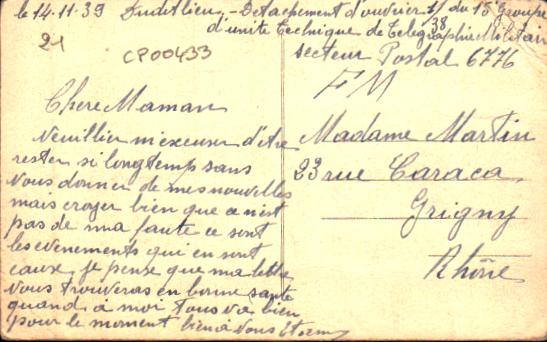 le 14.11.39 Dudit lieu - Detachement d'ouvrier 38 du 15 Groupe
d'unité technique de Telegraphie Militair
secteur Postal 6776
21
CP00433
FM
Chere Maman
Veuillier m'excuser d'être
rester si longtemps sans
Vous donner de mes nouvelles
mais croyer bien que ce n'est
pas de ma faute ce sont
les evenements qui en sont
caux, je pense que ma lettre
Vous trouveras en bonne sante
quand à moi tous va bien
pour le moment bien à Vous
Madame Martin
23 rue Caraca
Grigny
Rhône